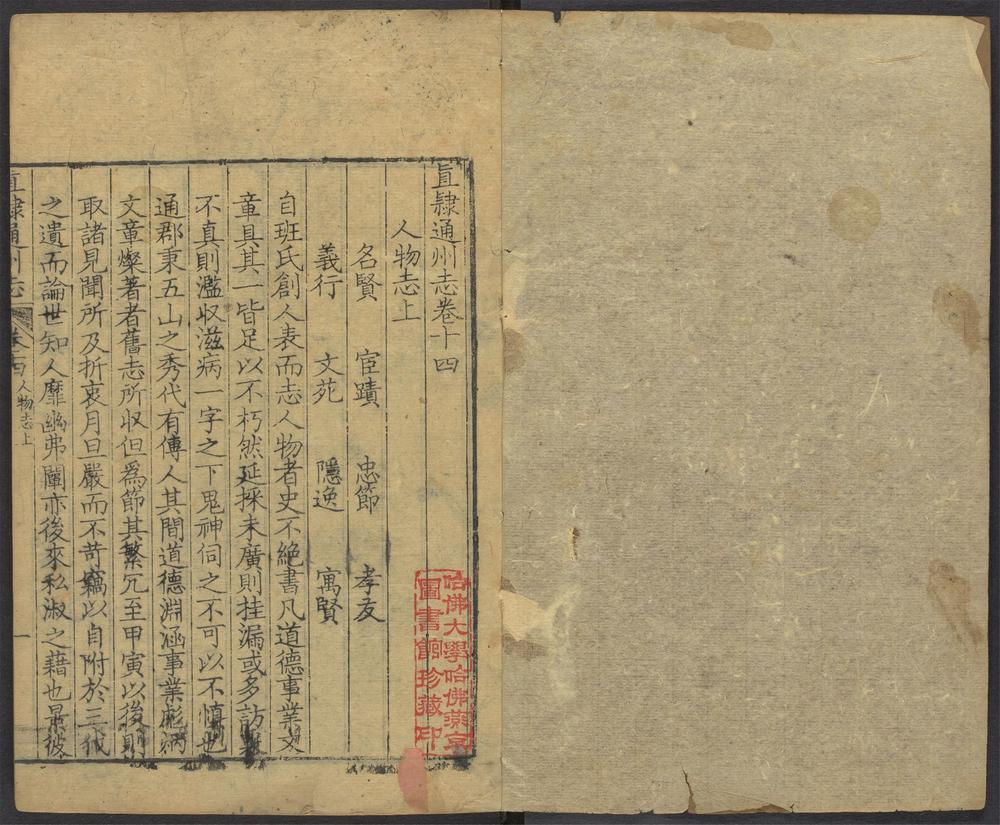 直隸通州志卷十四
人物志上
名賢 宦蹟 忠節 孝友
義行 文苑 隱逸 寓賢
自班氏創人表而志人物者史不絶書凡道德事業文
章具其一皆足以不朽然延採未廣則挂漏或多訪
不真則濫収滋病一字之下鬼神伺之不可以不慎也
通郡秉五山之秀代有傳人其間道德淵涵事業彪炳
文章燦著者舊志所収但為節其繁冗至甲寅以後則
取諸見聞所及折衷月旦嚴而不苛竊以自附於三代
之遺而論世知人靡幽弗闡亦後來私淑之藉也景彼
直隸通州志 卷十四 人物志上 一
哈佛大學哈佛燕京
圖書館珍藏印